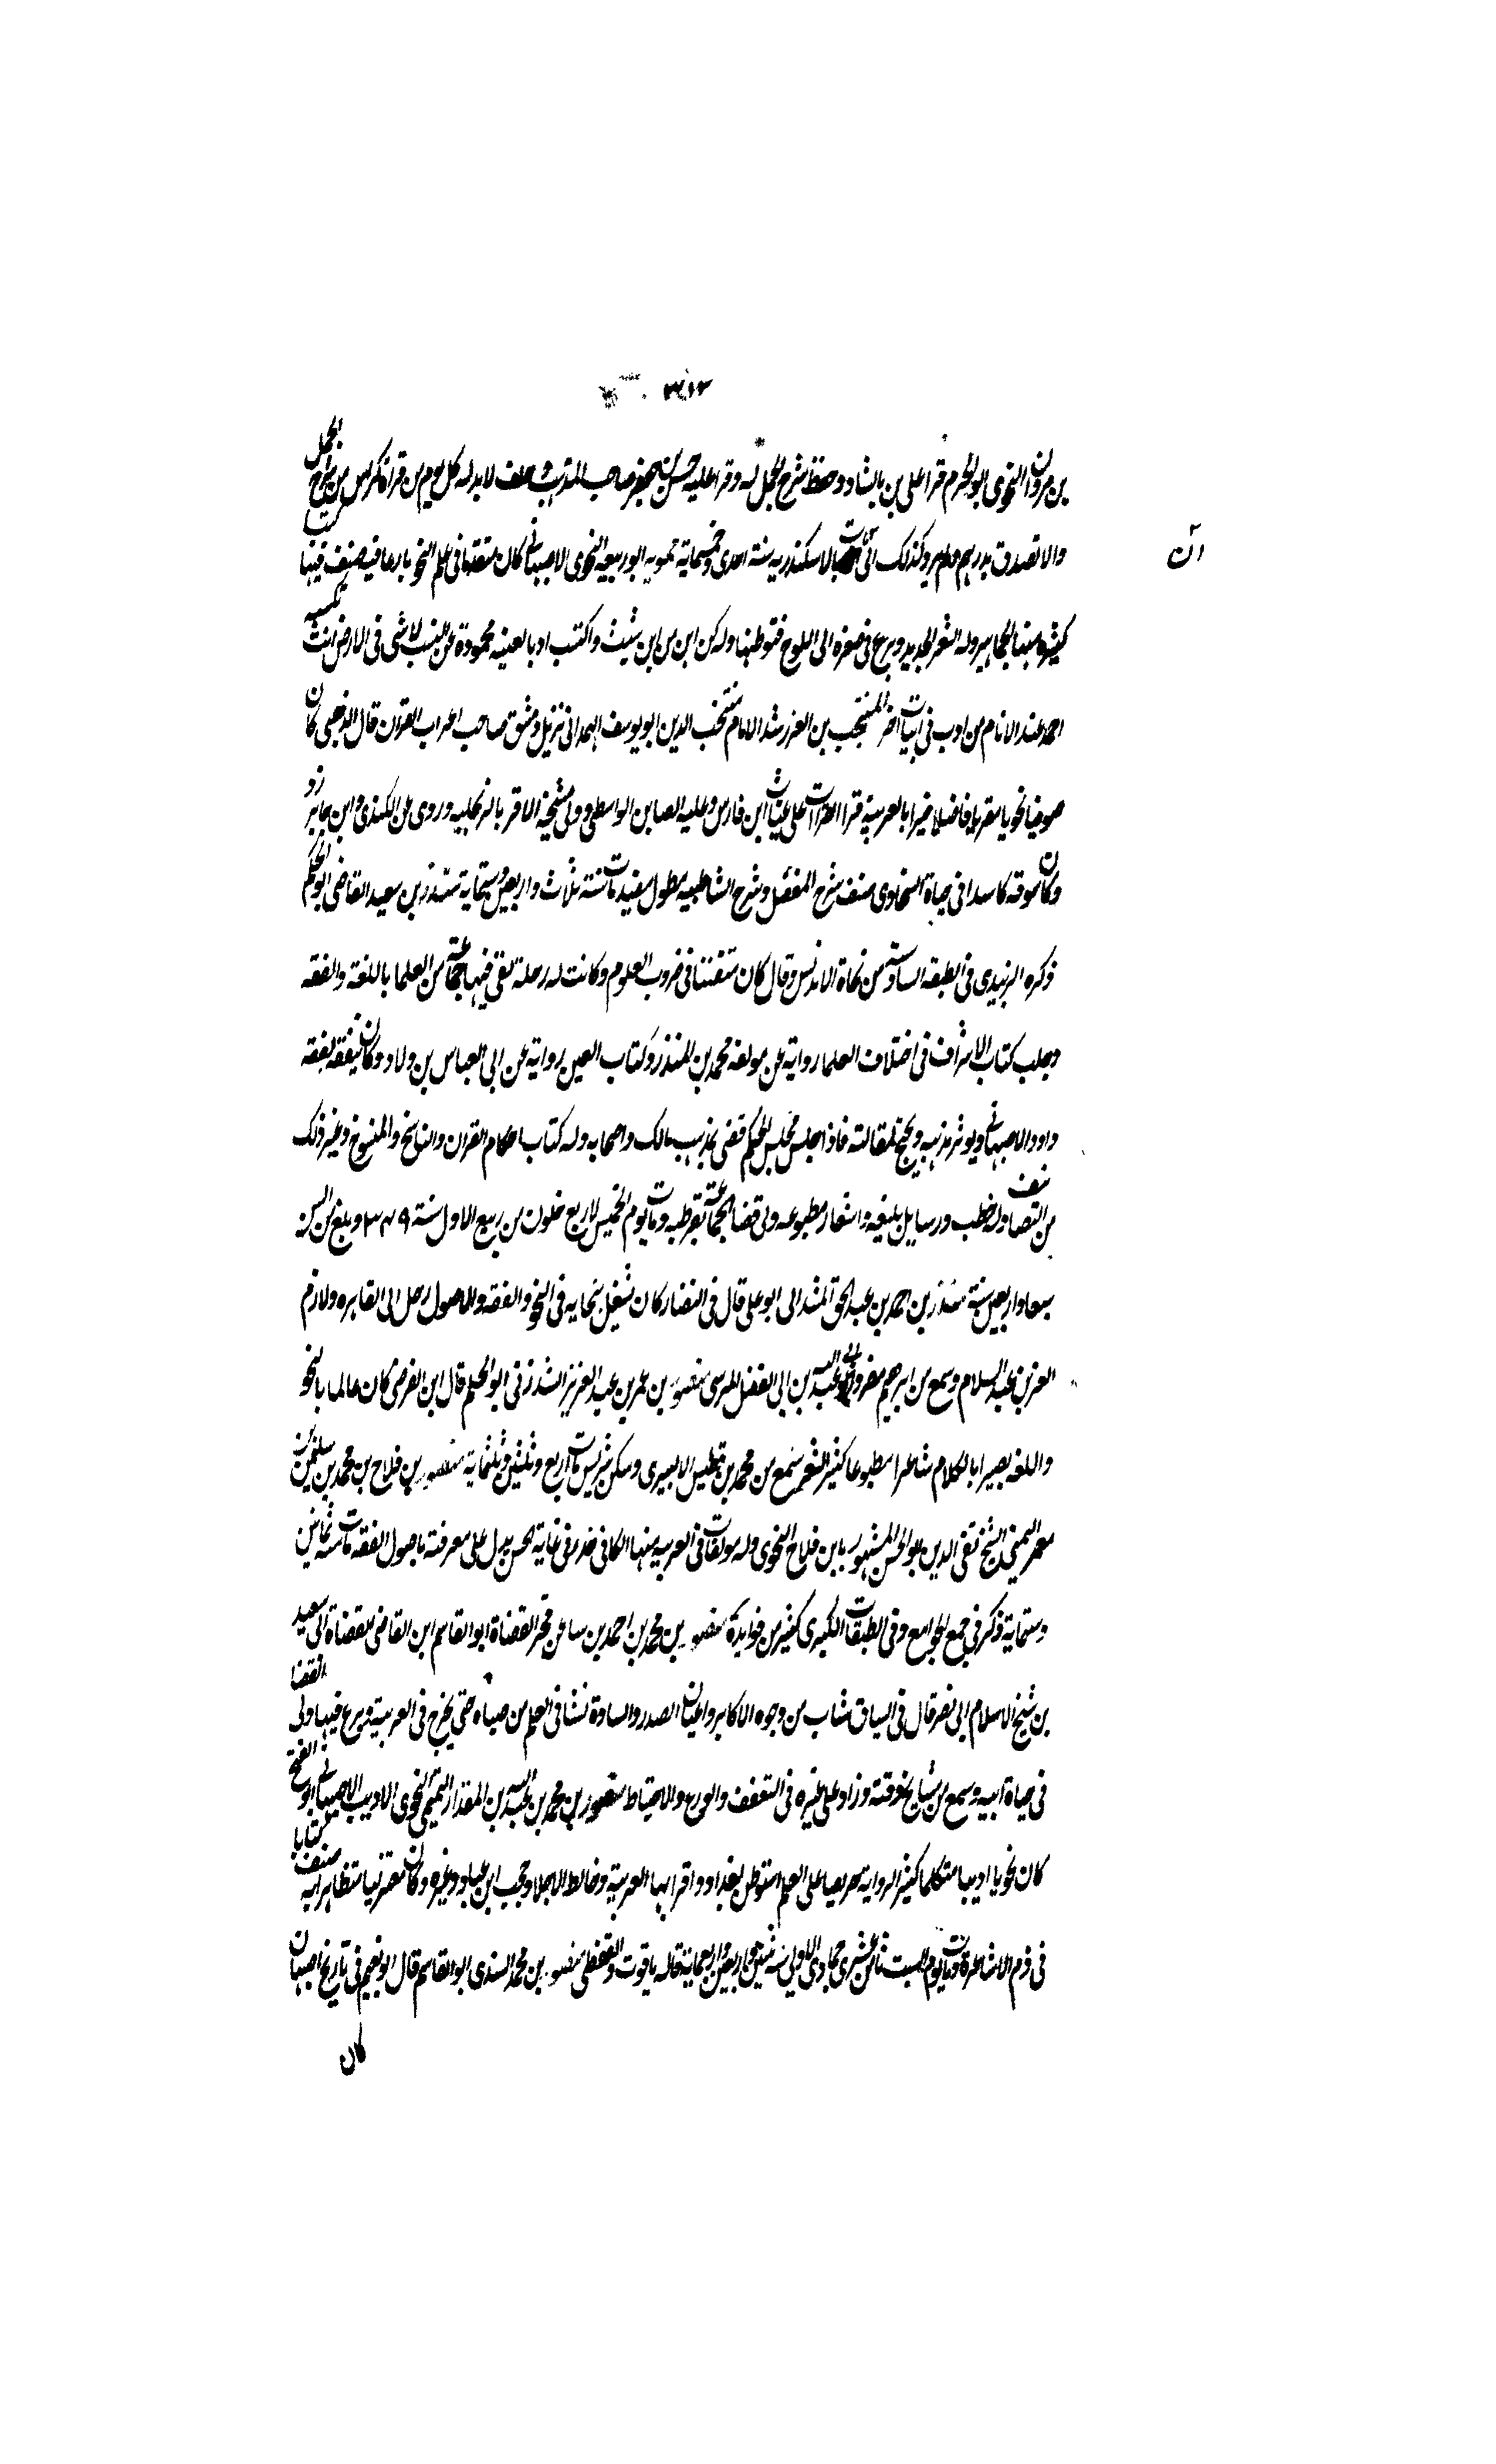 بن مروان النحوى ابو الحرم قرا على بن بابشاد وحفظ شرح الجمل له وقرا عليه حسن بن جعفر صاحب المذهب وحلف لابد له كل يوم من قراة كراس من شرح الجمل
والا تصدق بدرهم ولم ير كذلك الى ان مات بالاسكندريه سنة احدى وخمسماية مموية ابو ربيعه النحوى الاصبهانى كان متقدما فى علم النحو بارعا فيه صنف فيه كتبا
كثيره منها الجماهير وله الشعر الجيد وبرع فى صغره الى اللوح فتوطنها وله كن ابن من ابن شيت واكتسب ادبا لعينه محمودة عن النسب لا شى فى الارض انت تكسبه
احمد عند الانام من ادب فى ابيات اخر المنتجب بن العز رشد الامام منتخب الدين ابو يوسف الهمدانى نزيل دمشق صاحب اعراب القران قال الذهبى كان
صوفيا نحويا مقريا فاضلا خيرا بالعربية قرا القراات على غياث ابن فارس وعليه الصاين الواسطى وولى مشيخة الاقرا بالزنجليه وروى عن الكندى وابن طبرزد
وكان سوقه كاسدا فى حياة السخاوى صنف شرح المفصل وشرح الشاطبيه مطول مفيد مات سنة ثلاث واربعين وستماية منذر بن سعيد القاضى ابو الحكم
ذكره الزبيدى فى الطبقه السادسة من نحاة الاندلس وقال كان متفننا فى ضروب العلوم وكانت له رحلة لقى فيها جماعة من العلما باللغة والفقه
وجلب كتاب الاشراف فى اختلاف العلما رواية عن مولفه محمد بن المنذر وكتاب العين رواية عن ابى العباس بن ولاد وكان يتفقه بفقه
داود الاصبهانى ويوثر مذهبه ويحتج لمقالته فاذا جلس مجلس الحكم قضى بمذهب مالك واصحابه وله كتاب احكام القران والناسخ والمنسوخ وغير ذلك
من التصانيف وله خطب ورسايل بليغه واشعار مطبوعه ولى قضا الجماعة بقرطبه ومات يوم الخميس لاربع خلون من ربيع الاول سنة ٣٤٩ وبلغ من السن
سبعا واربعين سنة منذر بن احمد بن عبد الحق المشدالى ابو على قال فى النضار كان شغل بنجايه فى النحو والفقه والاصول رحل الى القاهره ولازم
العز بن عبد السلام وسمع من ابرهيم مضر وابى عبد الله بن ابى الفضل المرسى منصور بن عمر بن عبد العزيز الشذرنى ابو الحكم قال ابن الفرضى كان عالما بالنحو
واللغه بصيرا بالكلام شاعرا مطبوعا كثير الشعر سمع من محمد بن فطيس الالبيرى وسكن شريش مات اربع وثلثين وثلثماية منصور بن فلاح بن محمد بن سليمن بن
معمر اليمنى الشيخ تقى الدين ابو الخير المشهور بابن فلاح النحوى وله مولفات فى العربيه منها الكافى جزء فى غاية الحسن يدل على معرفته باصول الفقه مات سنة ثمانين
وستماية ذكر فى جمع الجوامع وفى الطبقات الكبرى كثير من فوايده منصور بن محمد بن احمد بن صاعد فخر القضاة ابو القاسم ابن القاضى القضاة ابى سعيد
بن شيخ الاسلام ابى نصر قال فى السياق شاب من وجوه الاكابر واعيان الصدور السادة نشا فى العلم من صباه حتى تخرج فى العربية وبرع فيها ولى القضا
فى حياة ابيه وسمع من مشايخ وقته وزاد على غيره فى التعفف والورع والاحتياط منصور بن محمد بن عبد الله بن المقدار التميمى النحوى الاديب الاصبهانى ابو الفتح
كان نحويا اديبا متكلما كثير الرواية حريصا على العلم استوطن بغداد واقرا بها العربية وخالط الاجلا وحجب ابن عباد وغيره وكان معتزليا متظاهرا به صنف كتابا
فى ذم الاشاعره ومات يوم السبت ثامن عشرى جمادى الاولى سنة ثنتين واربعين واربعماية قاله ياقوت والقفطى منصور بن محمد السندى ابو القاسم قال ابو نعيم فى تاريخ اصبهان
كان